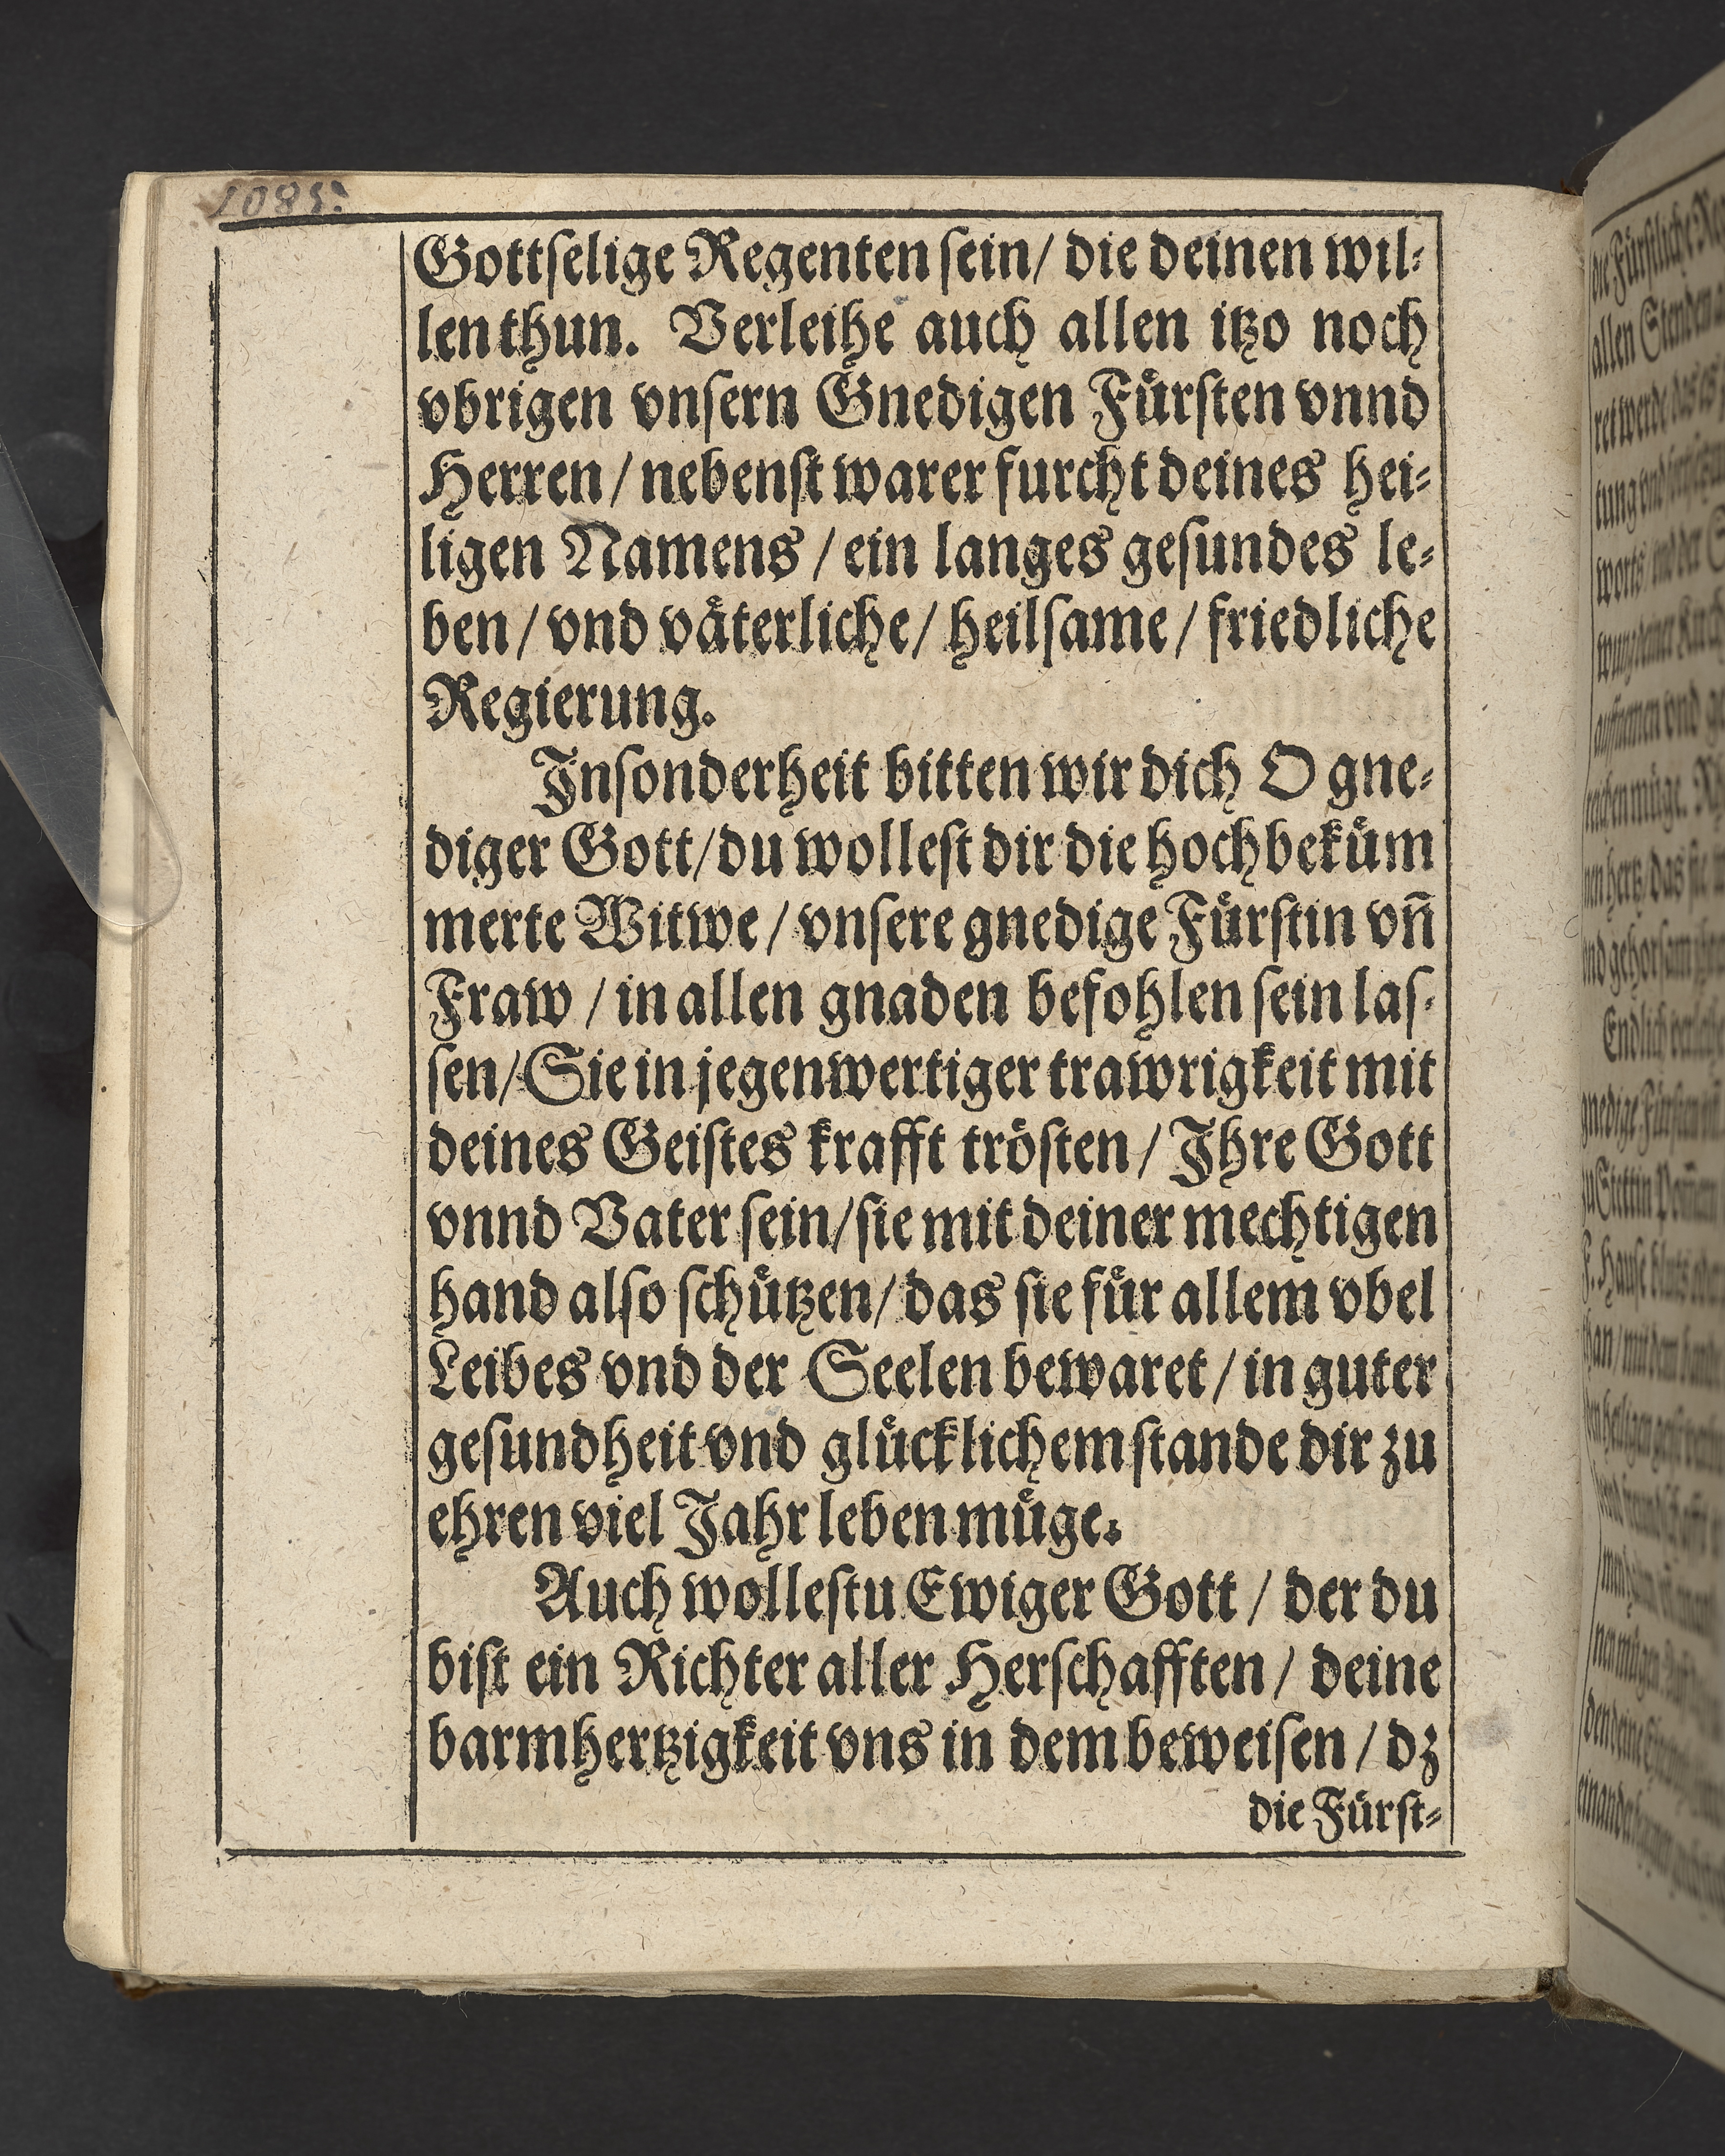 1085.
Gottſelige Regenten ſein/ die deinen wil-
len thun. Verleihe auch allen itzo noch
vbrigen vnſern Gnedigen Fuͤrſten vnnd
Herren / nebenſt warer furcht deines hei-
ligen Namens / ein langes geſundes le-
ben / vnd vaͤterliche / heilſame / friedliche
Regierung.
Inſonderheit bitten wir dich O gne-
diger Gott/ du wolleſt dir die hochbekuͤm
merte Witwe / vnſere gnedige Fuͤrſtin vn̄
Fraw / in allen gnaden befohlen ſein laſ-
ſen/ Sie in jegenwertiger trawrigkeit mit
deines Geiſtes krafft troͤſten / Ihre Gott
vnnd Vater ſein/ ſie mit deiner mechtigen
hand alſo ſchuͤtzen/ das ſie fuͤr allem vbel
Leibes vnd der Seelen bewaret / in guter
geſundheit vnd gluͤcklichem ſtande dir zu
ehren viel Jahr leben muͤge.
Auch wolleſtu Ewiger Gott / der du
biſt ein Richter aller Herſchafften / deine
barmhertzigkeit vns in dem beweiſen / dz
die Fuͤrſt-
die Fuͤrſtliche
allen Stenden